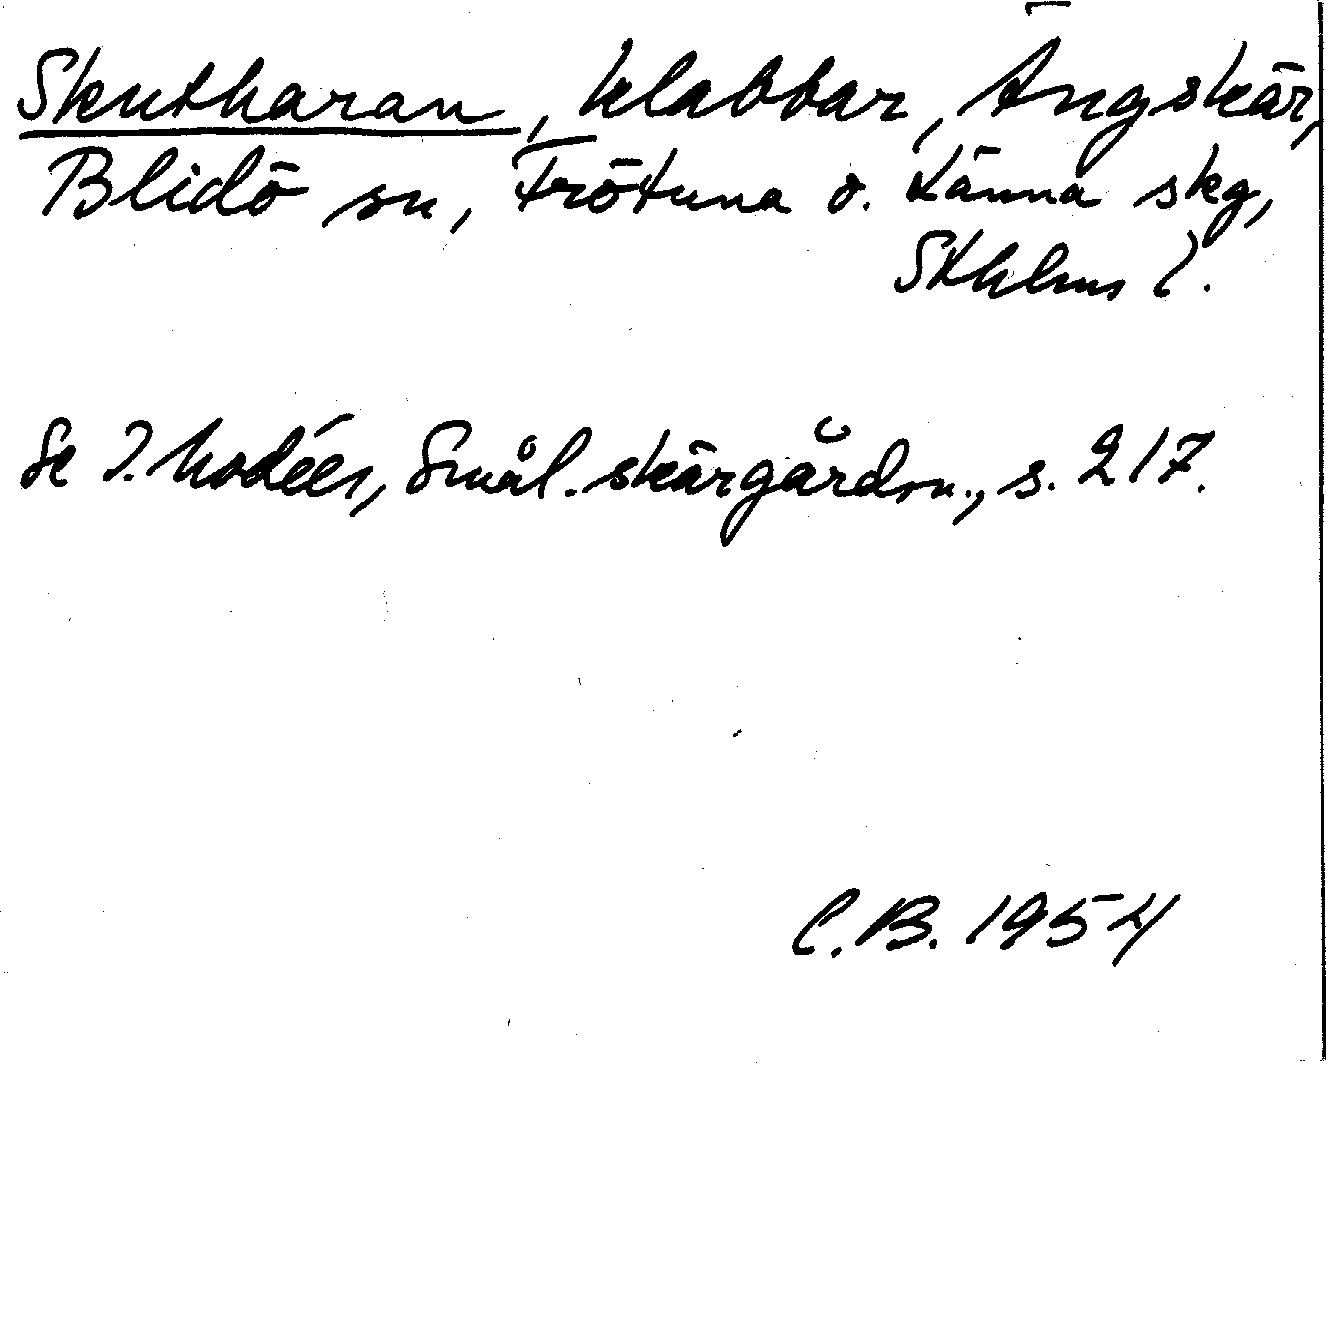 Skutharan, klabbar, Ängskär,
Blidö sn, Frötuna o. Länna skg,
Sthlms l.
Se I. Modéer, Smål. skärgårdsn., s. 217.
C.B. 1954